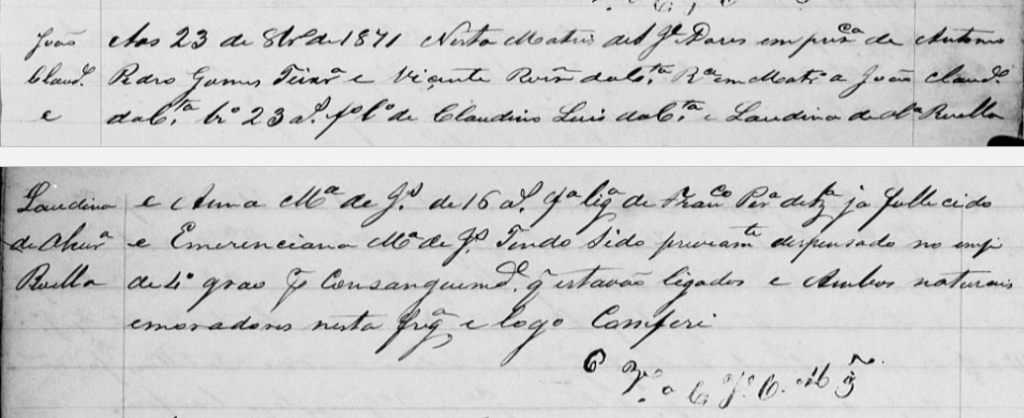 João Aos 23 de 8br.º de 1871 Nesta Matris de S. Je Dores em pres.ca de Antonio
Claud.º Pedro Gomes Teixr.ª e Vicente Roiz da C.ta R.am em Matr.º a João Claud.º
e da C.ta br.º 23 a.s f.º l.º de Claudino Luis da C.ta e Laudina de Ab.ª Ruella
Laudina e Anna M.ª de J.s de 16 a.s f.ª lig.ª de Fran.co Per.ª de já fallecido
de Ruella e Emerenciana M.ª de J.s Tendo Sido previam.te dispensado no imp
de 4º grao de Consanguinid.e q estavão ligados e Ambos naturais
e moradores nesta frg.ª e logo Conferi
O V.º